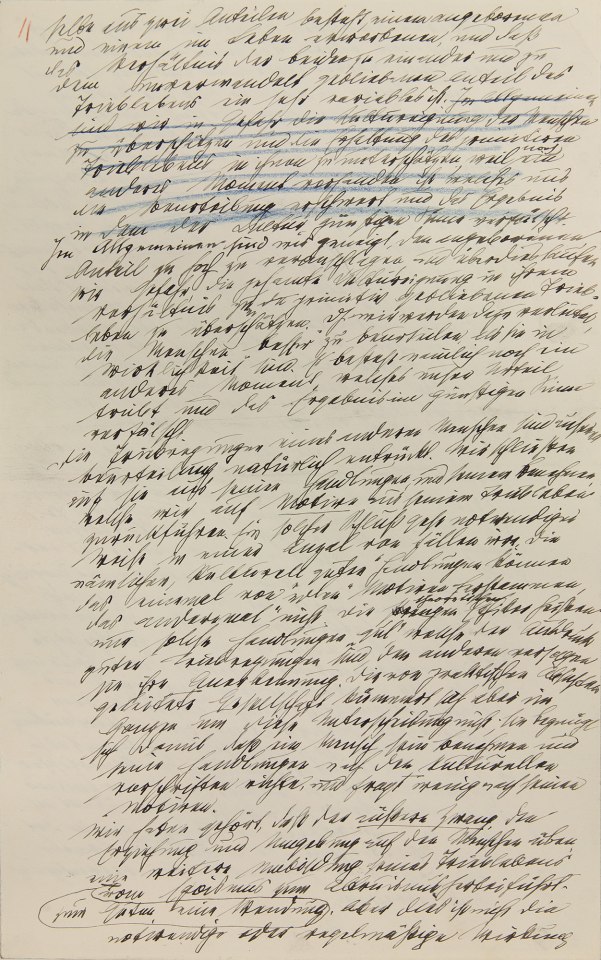 11
selbe aus zwei Anteilen besteht, einem angeborenen
und einem im Leben erworbenen, und daß
das Verhältnis der beiden zu einander und zu
dem unverwandelt gebliebenen Anteil des
Trieblebens ein sehr variables ist. Im allgemeinen
sind wir in Gefahr die Kultureignung des Menschen
zu überschätzen und die Erhaltung des primitiven
Trieblebens in ihnen zu unterschätzen, weil ein
anderes Moment vorhanden ist welches uns
die Beurteilung erschwert und das Ergebnis
in dem der Kultur günstigen Sinne verfälscht
Im Allgemeinen sind wir geneigt, den angeborenen
Anteil zu hoch zu veranschlagen und überdies laufen
wir Gefahr die gesamte Kultureignung in ihrem
Verhältnis zum primitiv gebliebenen Trieb-
leben zu überschätzen, dh wir werden dazu verleitet,
die Menschen „besser" zu beurteilen als sie in
Wirklichkeit sind. Es besteht nämlich noch ein
anderes Moment, welches unser Urteil
trübt und das Ergebnis im günstigen Sinne
verfälscht.
Die Triebregungen eines anderen Menschen sind unserer
Beurteilung natürlich entrückt. Wir schließen
auf sie aus seinen Handlungen und seinem Benehmen
welche wir auf Motive aus seinem Triebleben
zurückführen. Ein solcher Schluß geht notwendiger
Weise in einer Anzal von Fällen irre. Die
nämlichen, kulturell guten Handlungen können
das einemal von „edlen" Motiven herstammen
das anderemal nicht. Die theoretischen Ethiker heißen
nur solche Handlungen „gut" welche der Ausdruck
guter Triebregungen sind, den anderen versagen
sie ihre Anerkennung. Die von praktischen Absichten
geleitete Gesellschaft kümmert sich aber im
Ganzen um diese Unterscheidung nicht. Sie begnügt
sich damit, daß ein Mensch sein Benehmen und
seine Handlungen nach den kulturellen
Vorschriften richte, und fragt wenig nach seinen
Motiven.
Wir haben gehört, daß der äußere Zwang den
Erziehung und Umgebung auf den Menschen üben
eine weitere Umbildung seines Trieblebens
vom Egoismus zum Altruismus herbeiführt.
zum Guten eine Wendung. Aber dies ist nicht die
notwendige oder regelmäßige Wirkung